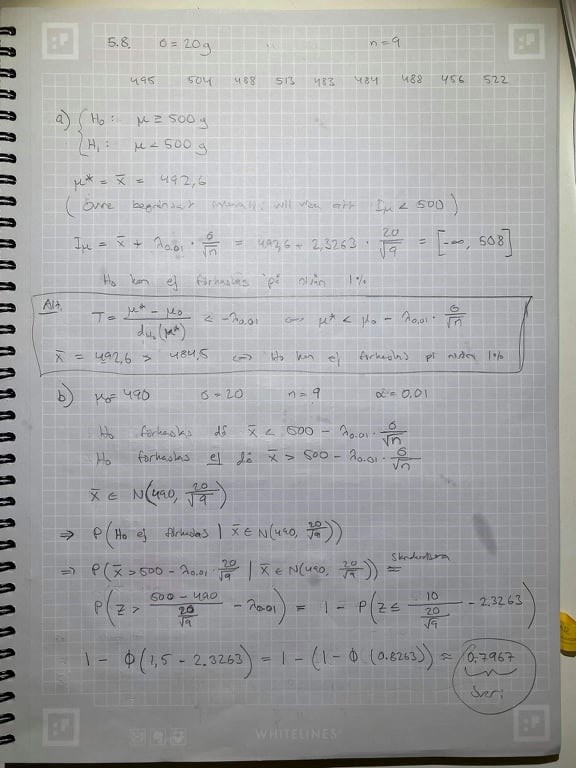 5.8. σ = 20 g n = 9
495 504 488 513 483 484 488 456 522
a) { H₀ : μ ≥ 500 g
H₁ : μ < 500 g
μ* = x̄ = 492,6
( Övre begränsat intervall: vill visa att Iμ < 500 )
Iμ = x̄ + λ0.01 · σ/√n = 492,6 + 2,3263 · 20/√9 = [-∞, 508]
H₀ kan ej förkastas på nivån 1%
Alt. T = (μ* - μ₀)/dμ₀(μ*) < -λ0.01 ⟺ μ* < μ₀ - λ0.01 · σ/√n
x̄ = 492,6 > 484,5 ⟺ H₀ kan ej förkastas på nivån 1%
b) μ₀ = 490 σ = 20 n = 9 α = 0.01
H₀ förkastas då x̄ < 500 - λ0.01 · σ/√n
H₀ förkastas ej då x̄ > 500 - λ0.01 · σ/√n
x̄ ∈ N(490, 20/√9)
⇒ P(H₀ ej förkastas | x̄ ∈ N(490, 20/√9))
⇒ P(x̄ > 500 - λ0.01 · 20/√9 | x̄ ∈ N(490, 20/√9)) =
P(Z > (500 - 490)/(20/√9) - λ0.01) = 1 - P(Z ≤ 10/(20/√9) - 2.3263)
1 - Φ(1,5 - 2.3263) = 1 - (1 - Φ(0.8263)) ≈ 0,7967
Svar:
WHITELINES